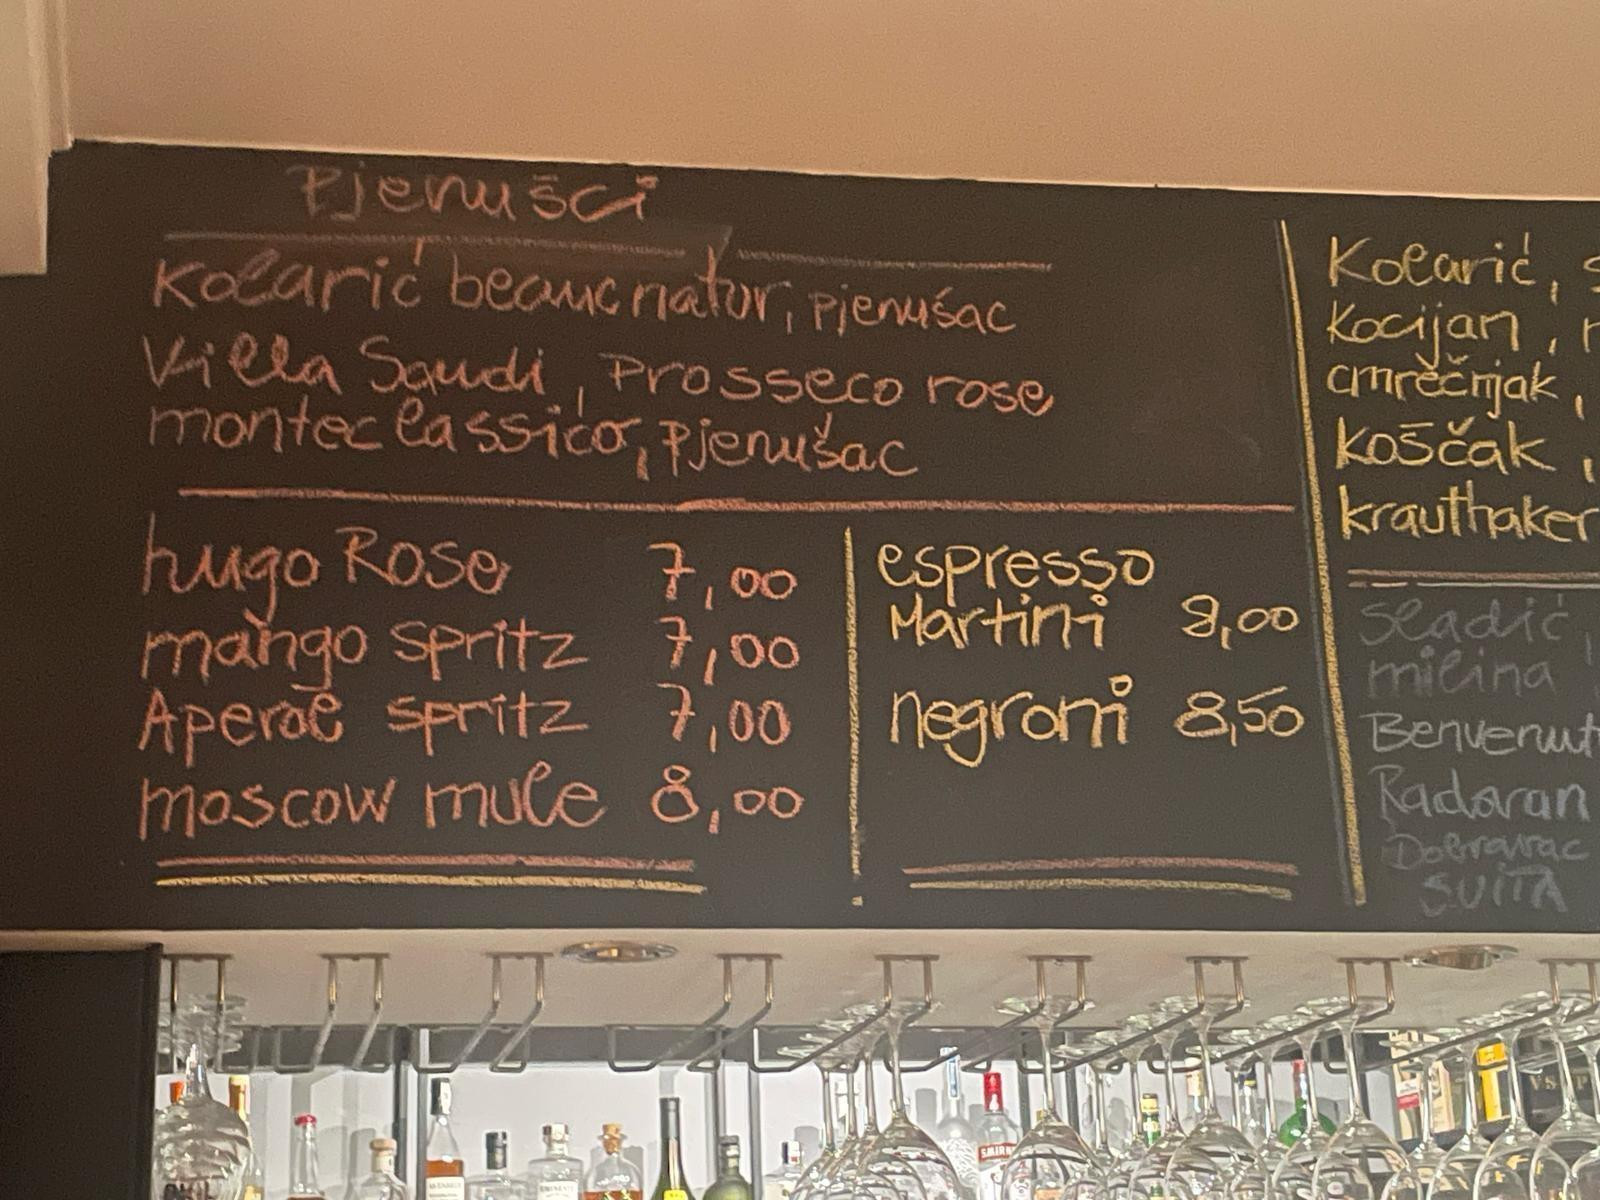 Pjenušci
Kolarić beauc natur, pjenušac
Villa Saudi, Prosseco rose
monteclassico, pjenušac
hugo Rose 7,00
mango spritz 7,00
Aperol spritz 7,00
moscow mule 8,00
espresso
Martini 8,00
negroni 8,50
Kolarić,
Kocijan,
cmrěčnjak,
koščak,
krauthaker
sladić,
milina
Benvenut
Radovan
Dobravac
SUITA